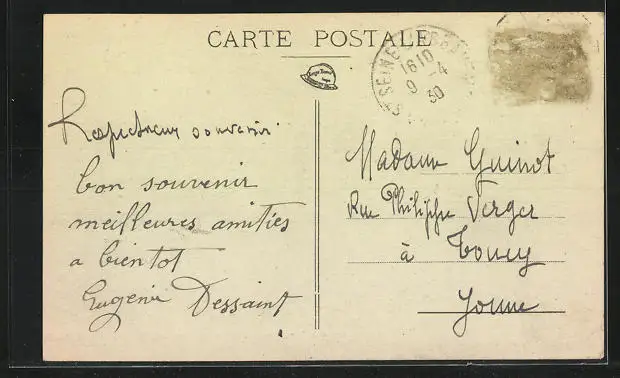 CARTE POSTALE
1610
9 -4
30
Respectueux souvenir.
bon souvenir
meilleures amitiés
a bientot
Eugénie Dessaint
Madame Guinot
Rue Philippe Verger
à Toucy
Yonne